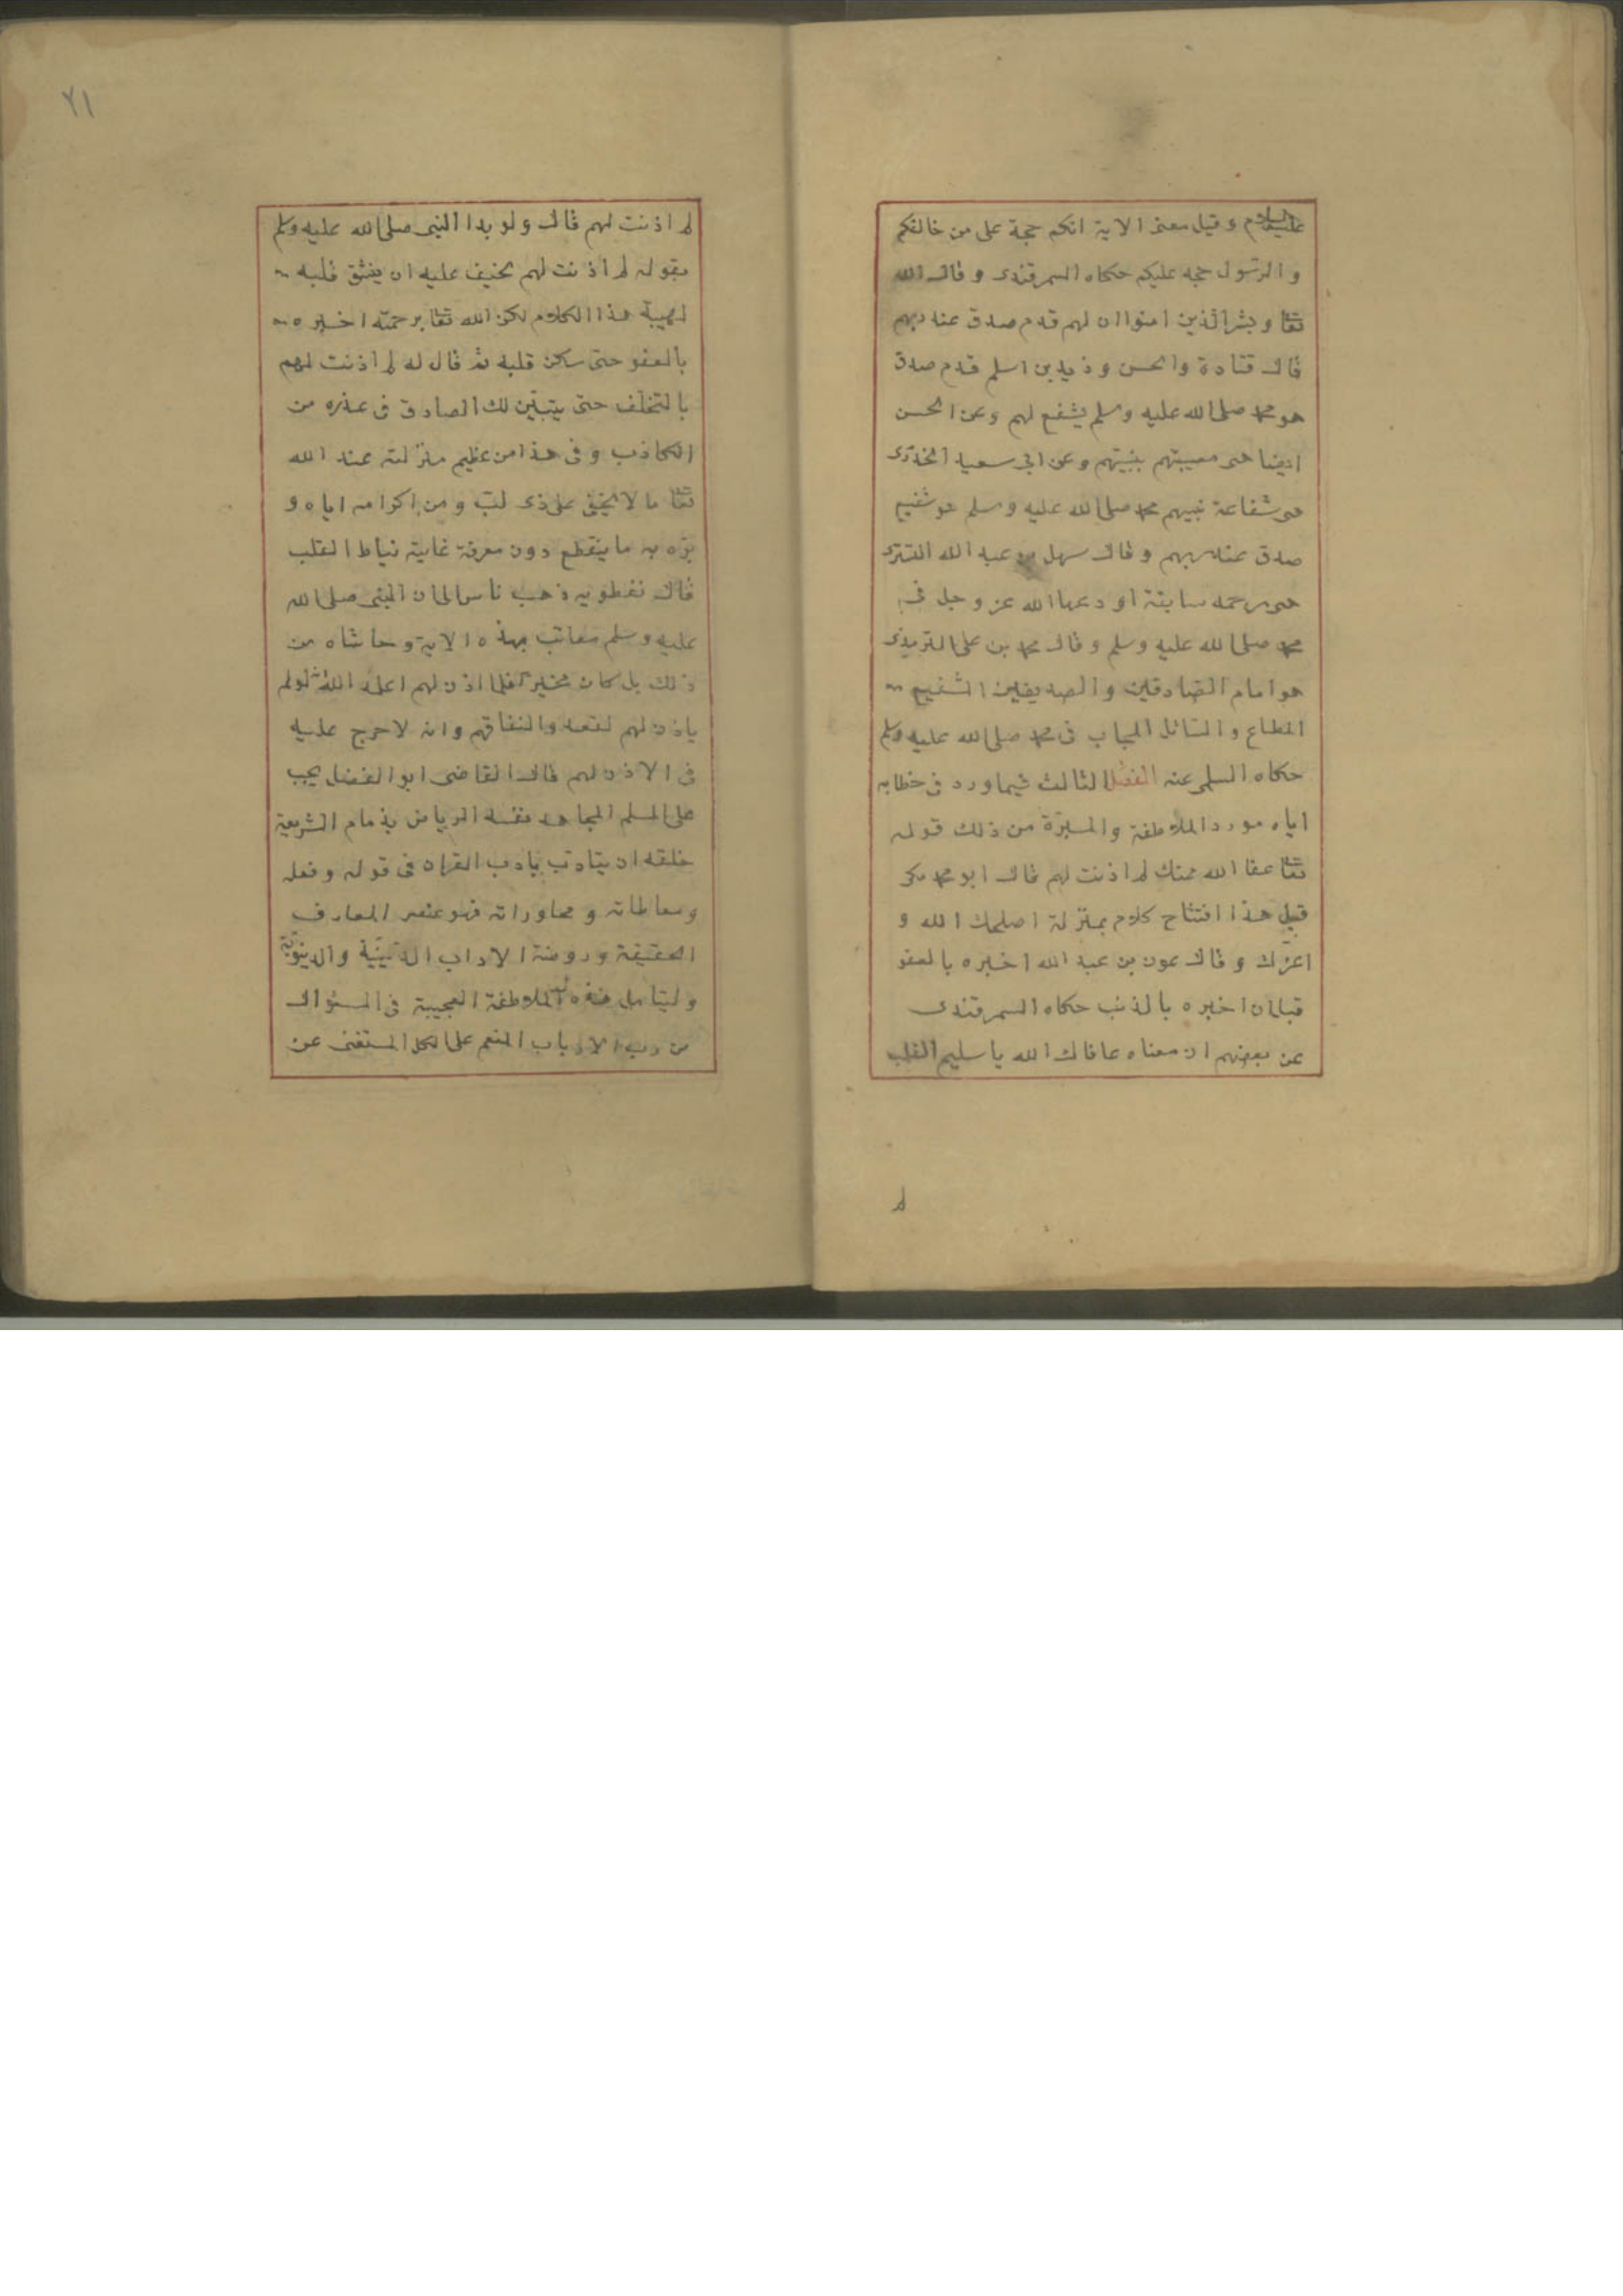 عليه السلام وقيل معنى الاية انكم حجة على من خالفكم
والرسول حجة عليكم حكاه السمرقندى وقال الله
تعا وبشر الذين امنوا ان لهم قدم صدق عند ربهم
قال قتادة والحسن وزيد بن اسلم قدم صدق
هو محمد صلى الله عليه وسلم يشفع لهم وعن الحسن
ايضا هى مصيبتهم بنبيهم وعن ابي سعيد الخدرى
هى شفاعة نبيهم محمد صلى الله عليه وسلم هو شفيع
صدق عند ربهم وقال سهل بن عبد الله التسترى
هى رحمة سابقة اودعها الله عز وجل فى
محمد صلى الله عليه وسلم وقال محمد بن على الترمذى
هو امام الصادقين والصديقين الشفيع
المطاع والسائل المجاب فى محمد صلى الله عليه وسلم
حكاه السلمى عنه الفصل الثالث فيما ورد فى خطابه
اياه مورد الملاطفة والمبرّة من ذلك قوله
تعا عفا الله عنك لم اذنت لهم قال ابو محمد مكى
قيل هذا افتتاح كلام بمنزلة اصلحك الله و
اعزّك وقال عون بن عبد الله اخبره بالعفو
قبل ان اخبره بالذنب حكاه السمرقندى
عن بعضهم ان معناه عافاك الله يا سليم القلب
لم
٢١
لم اذنت لهم قال ولو بدا النبى صلى الله عليه وسلم
بقوله لم اذنت لهم لخيف عليه ان ينشق قلبه
لهيبة هذا الكلام لكن الله تعا برحمته اخبره
بالعفو حتى سكن قلبه ثم قال له لم اذنت لهم
بالتخلف حتى يتبيّن لك الصادق فى عذره من
الكاذب وفى هذا من عظيم منزلته عند الله
تعا ما لا يخفى على ذى لبّ ومن اكرامه اياه و
برّه به ما ينقطع دون معرفة غايته نياط القلب
قال نفطويه ذهب ناس الى ان النبى صلى الله
عليه وسلم معاتب بهذه الاية وحاشاه من
ذلك بل كان مخيرا فلما اذن لهم اعلم الله انه لو لم
ياذن لهم لقعدوا لنفاقهم وانه لا حرج عليه
فى الاذن لهم قال القاضى ابو الفضل يجب
على المسلم المجاهد نفسه الرياض بزمام الشريعة
خلقه ان يتادّب بادب القران فى قوله وفعله
ومعاطاته ومحاوراته فهو عنصر المعارف
الحقيقة وروضة الاداب الدّينيّة والدنيويّة
وليتامل هذه الملاطفة العجيبة فى السؤال
من رب الارباب المنعم على الكل المستغنى عن